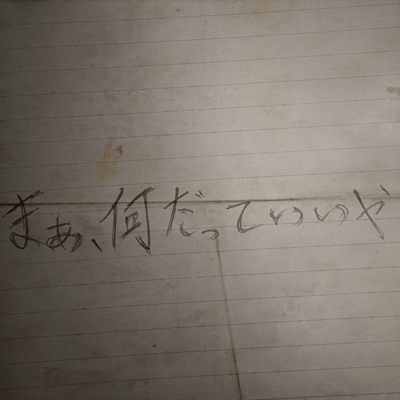 まぁ、何だっていいや